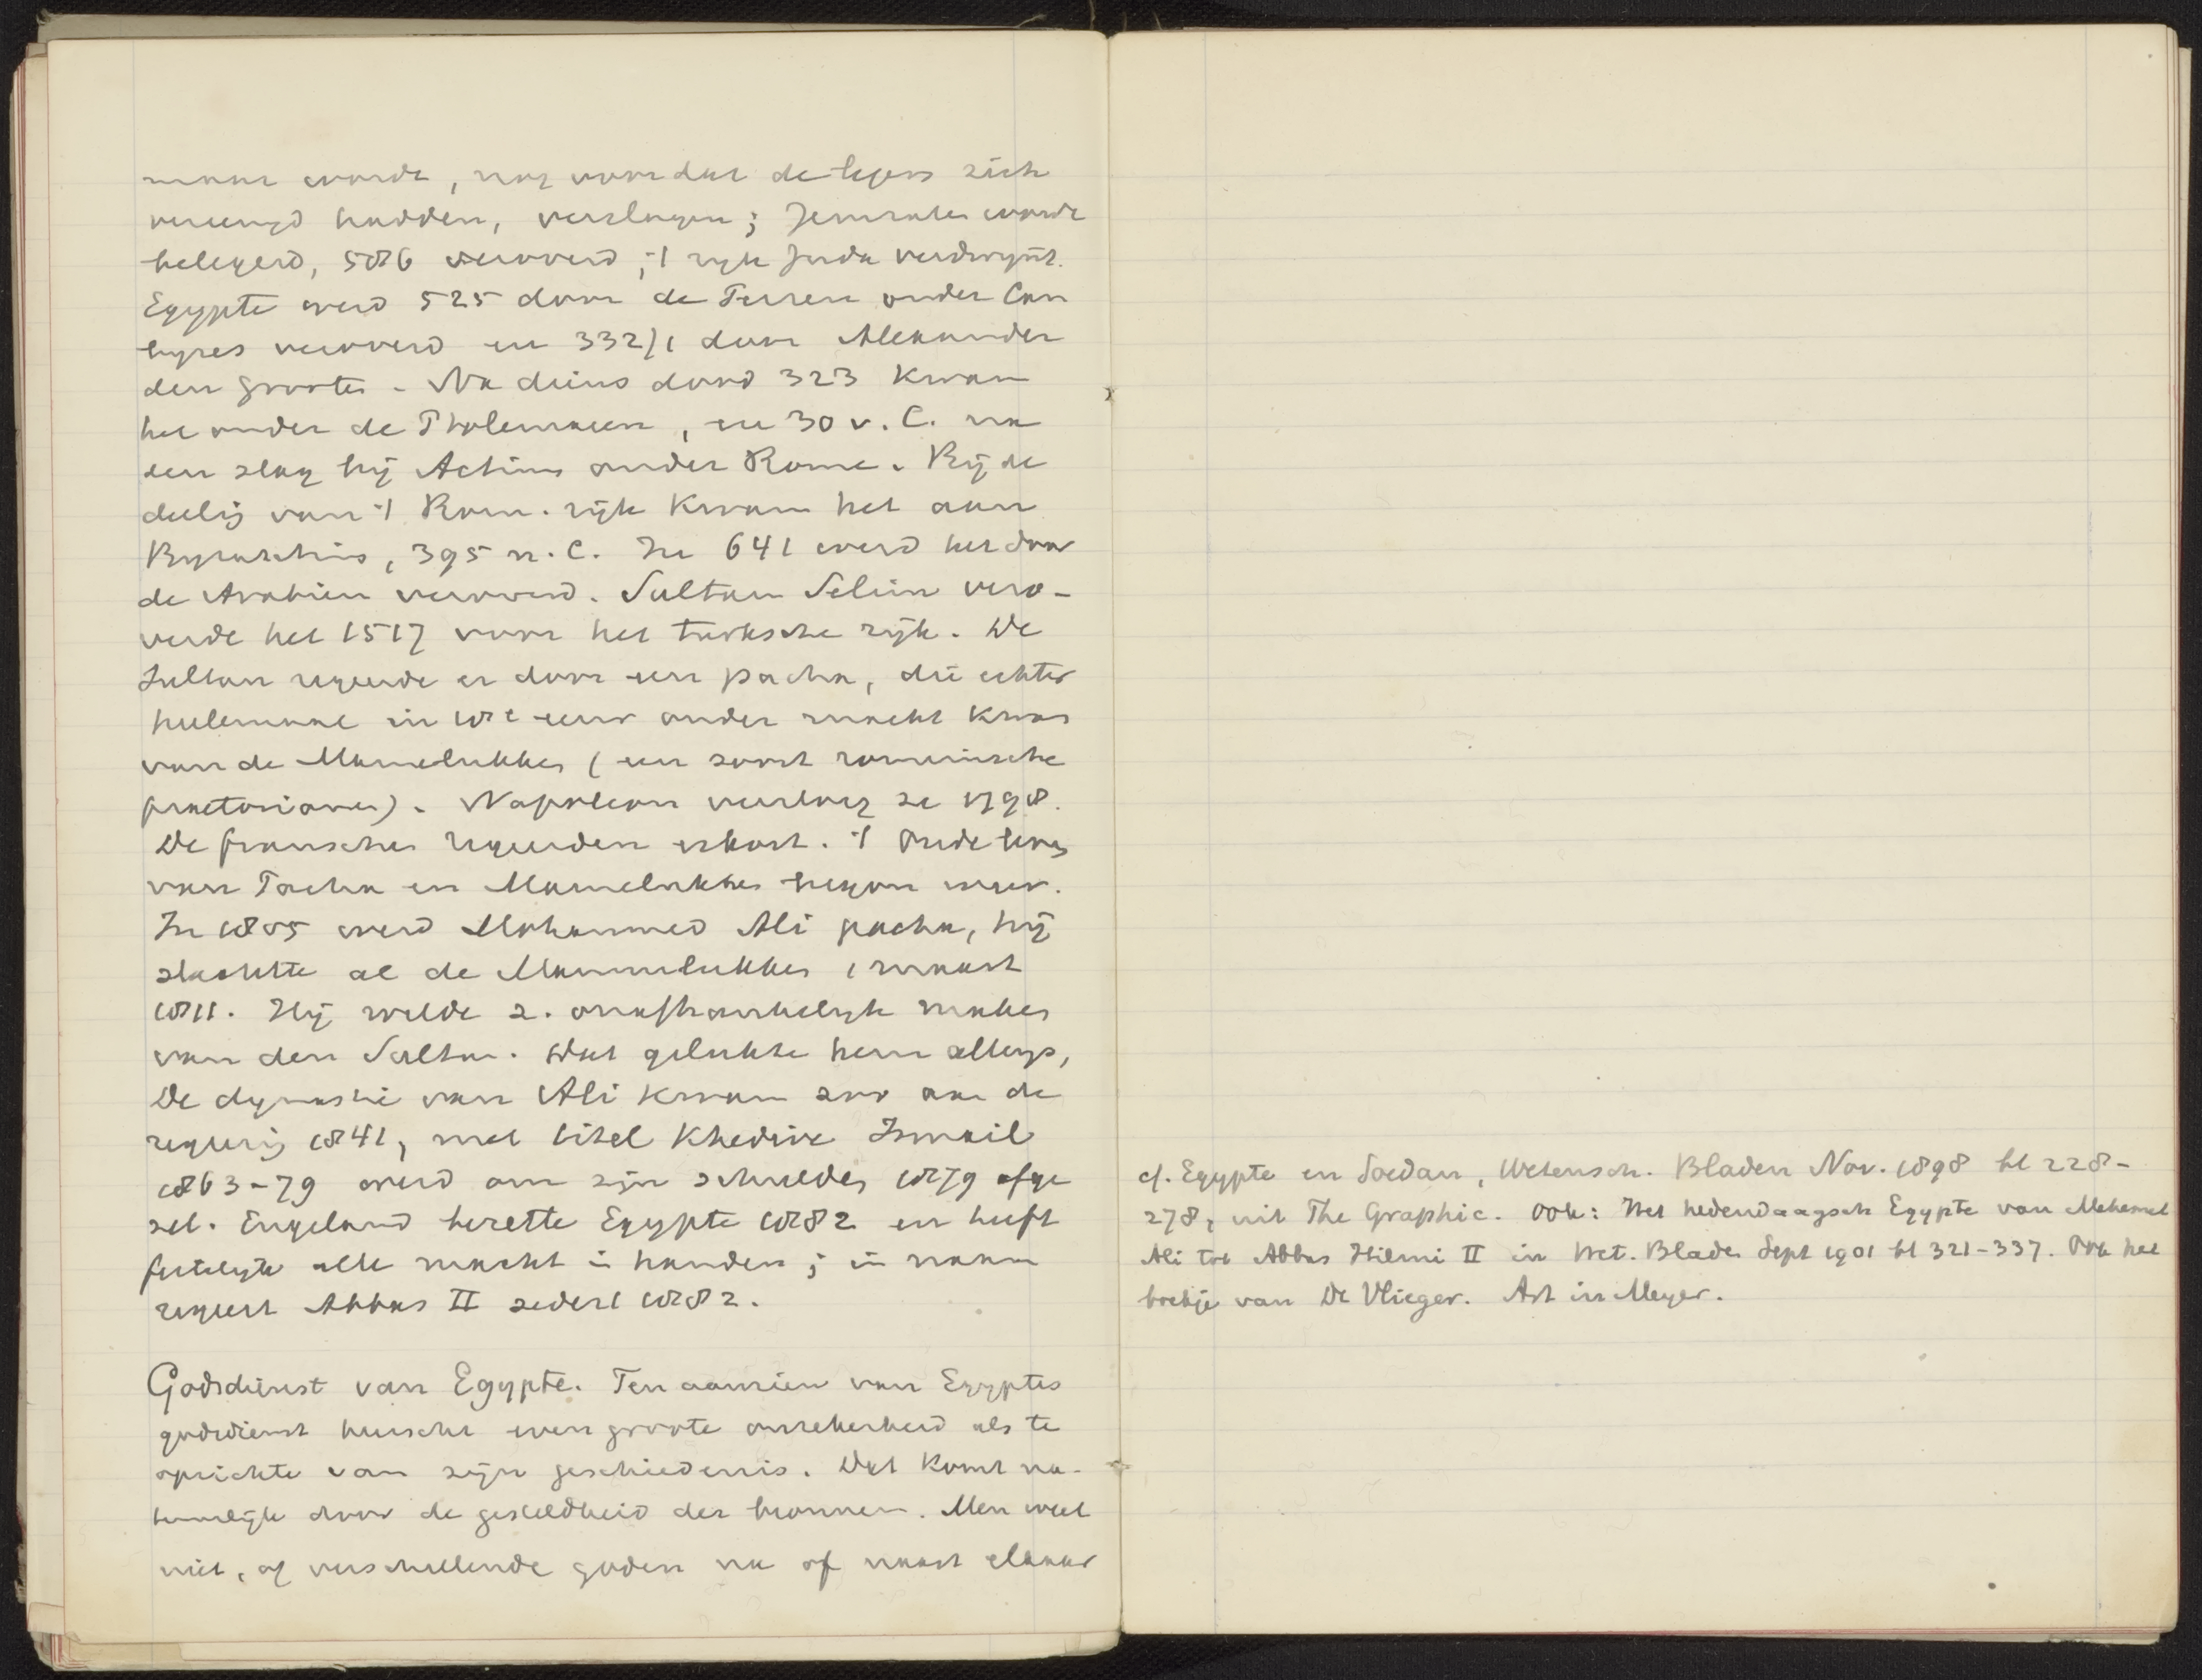 maar worde, nog voordat de legers zich
vereenigd hadden, verslagen; Jerusalem worde
belegerd, 586 veroverd, 't ryk Juda verdwynt.
Egypte werd 525 door de Perzen onder Cam
byses veroverd en 332/1 door Alexander
den groote. Na diens dood 323 kwam
het onder de Ptolemaeen, en 30 v. C. na
den slag bij Actium onder Rome. Bij de
deelig van 't Rom. rijk kwam het aan
Byzantium, 395 n. C. In 641 werd het door
de Arabieren veroverd. Sultan Selim vero-
verde het 1517 voor het turksche rijk. De
Sultan regeerde er door een pacha, die echter
heelemaal in 18e eeuw onder macht kwam
van de Mamelukken (een soort romeinsche
praetorianen). Napoleon versloeg ze 1798.
De franschen regeerden er kort. 't Oude leven
van Pacha en Mamelukken begon weer.
In 1805 werd Mohammed Ali pacha, hij
slachtte al de Mammelukken 1 maart
1811. Hij wilde z. onafhankelyk maken
van den Sultan. Dat gelukte hem allengs,
De dynastie van Ali kwam zoo aan de
regeerig 1841, met titel Khedive Ismail
1863-79 werd om zijn schulden 1879 afge
zet. Engeland bezette Egypte 1882 en heeft
feitelyk alle macht in handen; in naam
regeert Abbas II sedert 1882.
Godsdienst van Egypte. Ten aanzien van Egyptes
godsdienst heerscht even groote onzekerheid als te
opzichte van zijn geschiedenis. Dat komt na-
tuurlijk door de gesteldheid der bronnen. Men weet
niet, of verschillende goden na of naast elkaar
cf. Egypte en Soedan, Wetensch. Bladen Nov. 1898 bl 228-
278, uit The Graphic. Ook: Het hedendaagsch Egypte van Mehemet
Ali tot Abbas Hilmi II in Wet. Bladen Sept 1901 bl 321-337. Ook het
boekje van De Vlieger. Art in Meyer.